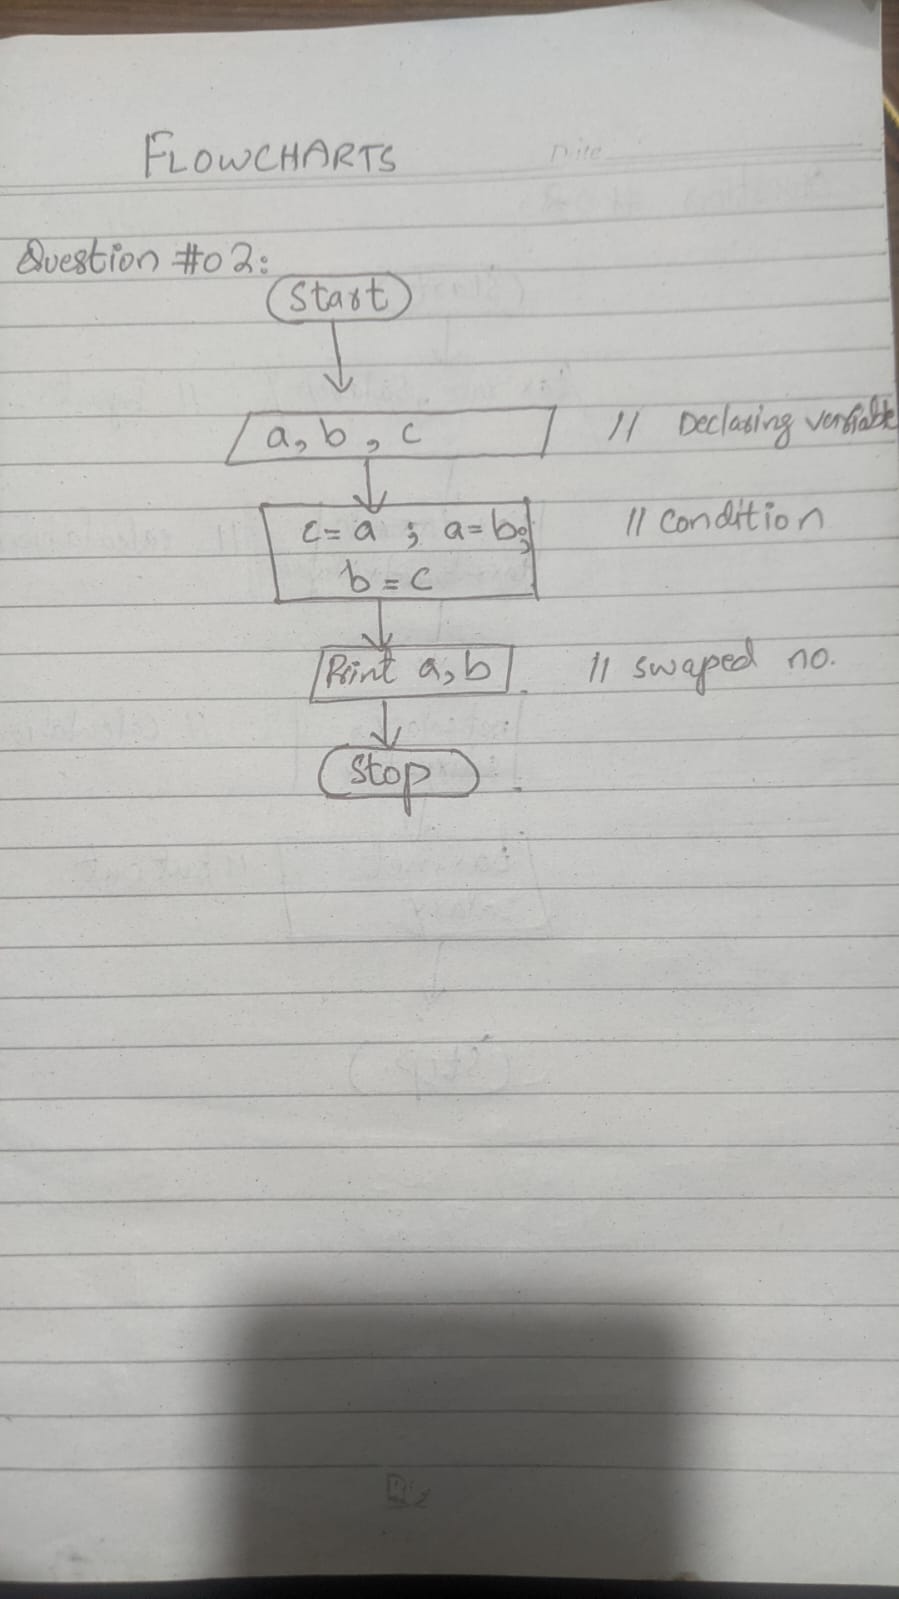 FLOWCHARTS
Date
Question #02:
Start
a, b, c // Declaring variable
c = a ; a = b;
b = c // condition
Print a, b // swaped no.
Stop